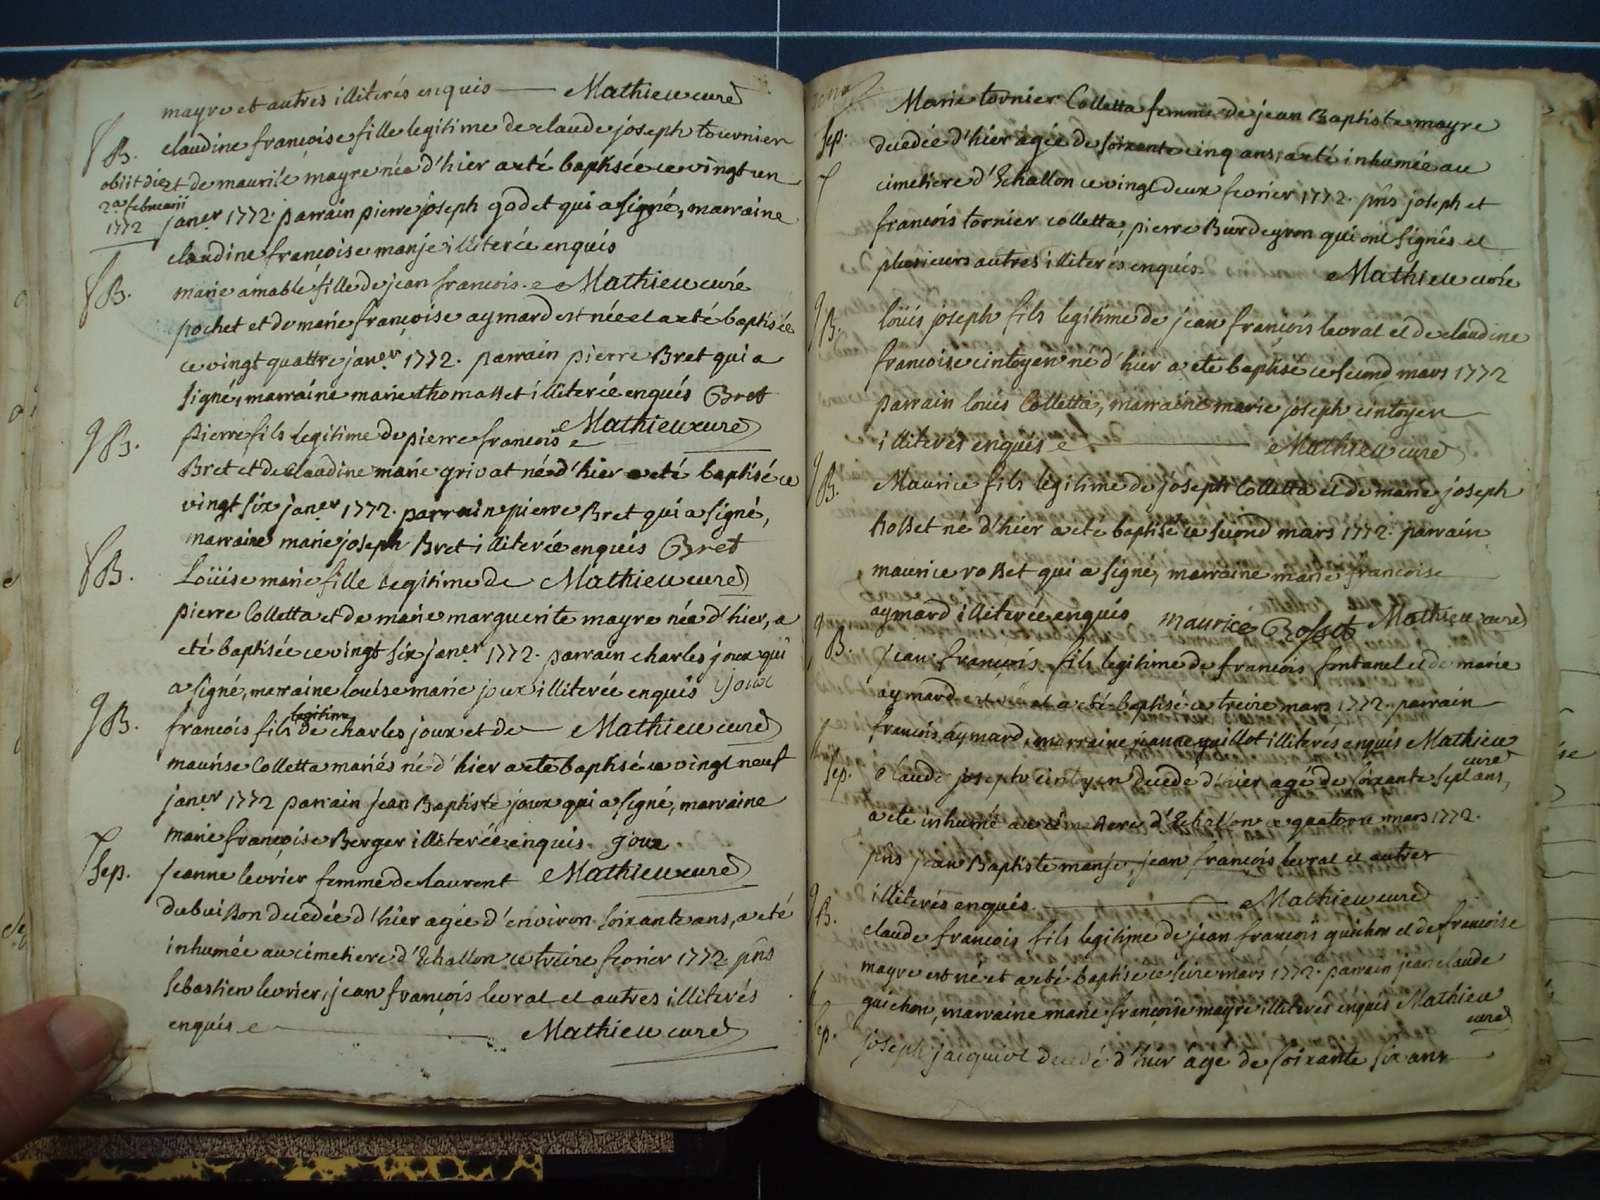 mayre et autres illiterés enquis — Mathieu curé
B. claudine francoise fille legitime de claude joseph tournier
obiit die et de maurise mayre née d'hier a eté baptisée ce vingt un
2a februarii
1772 janer 1772. parrain pierre joseph godet qui a signé, marraine
claudine francoise manje illiterée enquis
B. marie amable fille de jean francois Mathieu curé
pochet et de marie françoise aymard est née et a eté baptisée
ce vingt quattre janer 1772. parrain pierre Bret qui a
signé, marraine marie thomasset illiterée enquis Bret
B. pierre fils legitime de pierre francois Mathieu curé
Bret et de claudine marie grivat né d'hier a eté baptisé ce
vingt six janer 1772. parrain pierre Bret qui a signé,
marraine marie joseph Bret illiterée enquis Bret
B. Loüise marie fille legitime de Mathieu curé
pierre Colletta et de marie marguerite mayre née d'hier, a
eté baptisée ce vingt six janer 1772. parrain charles joux qui
a signé, marraine louise marie joux illiterée enquis Joux
legitime
B. francois fils de charles joux et de — Mathieu curé
maurise Colletta mariés né d'hier a eté baptisé ce vingt neuf
janer 1772 parrain jean Baptiste joux qui a signé, marraine
marie françoise Berger illiterée enquis. joux.
Sep. jeanne levrier femme de laurent Mathieu curé
dubuisson decedée d'hier agée d'environ soixante ans, a eté
inhumée au cimetiere d'Echallon ce treize fevrier 1772 pñs
sebastien levrier, jean françois levrat et autres illiterés
enquis — Mathieu curé
Marie tornier Colletta femme de jean Baptiste mayre
Sep. decedée d'hier agée de soixante cinq ans, a eté inhumée au
cimetiere d'Echallon ce vingt deux fevrier 1772. pñs joseph et
francois tornier colletta, pierre Burdeyron qui ont signés et
plusieurs autres illiterés enquis. Mathieu curé
B. loüis joseph fils legitime de jean françois levrat et de claudine
francoise cintoyen né d'hier a eté baptisé ce second mars 1772
parrain loüis Colletta, marraine marie joseph cintoyen
illiterés enquis — Mathieu curé
B. Maurice fils legitime de joseph Colletta et de marie joseph
Rosset né d'hier a eté baptisé ce second mars 1772. parrain
maurice rosset qui a signé, marraine marie francoise
aymard illiterée enquis maurice Rosset Mathieu curé
B. jean françois fils legitime de francois fontanel et de marie
aymard est né et a eté baptisé ce treize mars 1772. parrain
francois aymard, marraine jeanne guillot illiterés enquis Mathieu
curé
Sep. Claude joseph cintoyen decedé d'hier agé de soixante sept ans,
a eté inhumé au cimetiere d'Echallon ce quatorze mars 1772.
pñs jean Baptiste manje, jean francois levrat et autres
illiterés enquis — Mathieu curé
B. claude francois fils legitime de jean francois guichon et de francoise
mayre est né et a eté baptisé ce seize mars 1772. parrain jean claude
guichon, marraine marie françoise mayre illiterés enquis Mathieu
curé
Sep. joseph jacquiot decedé d'hier agé de soixante six ans